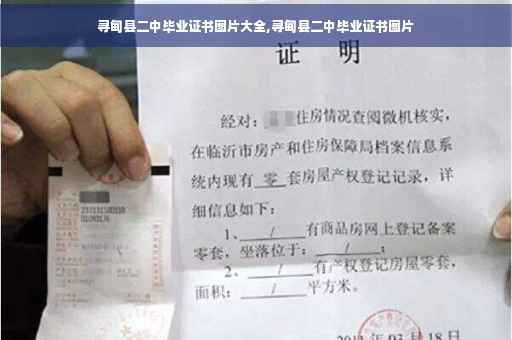 寻甸县二中毕业证书图片大全,寻甸县二中毕业证书图片
证 明
经对: 住房情况查阅微机核实,
在临沂市房产和住房保障局档案信息系
统内现有 零 套房屋产权登记记录,详
细信息如下:
1、 / 有商品房网上登记备案
零套,坐落位于: / ;
2、 / 有产权登记房屋零套,
面积: / 平方米。
03月18日